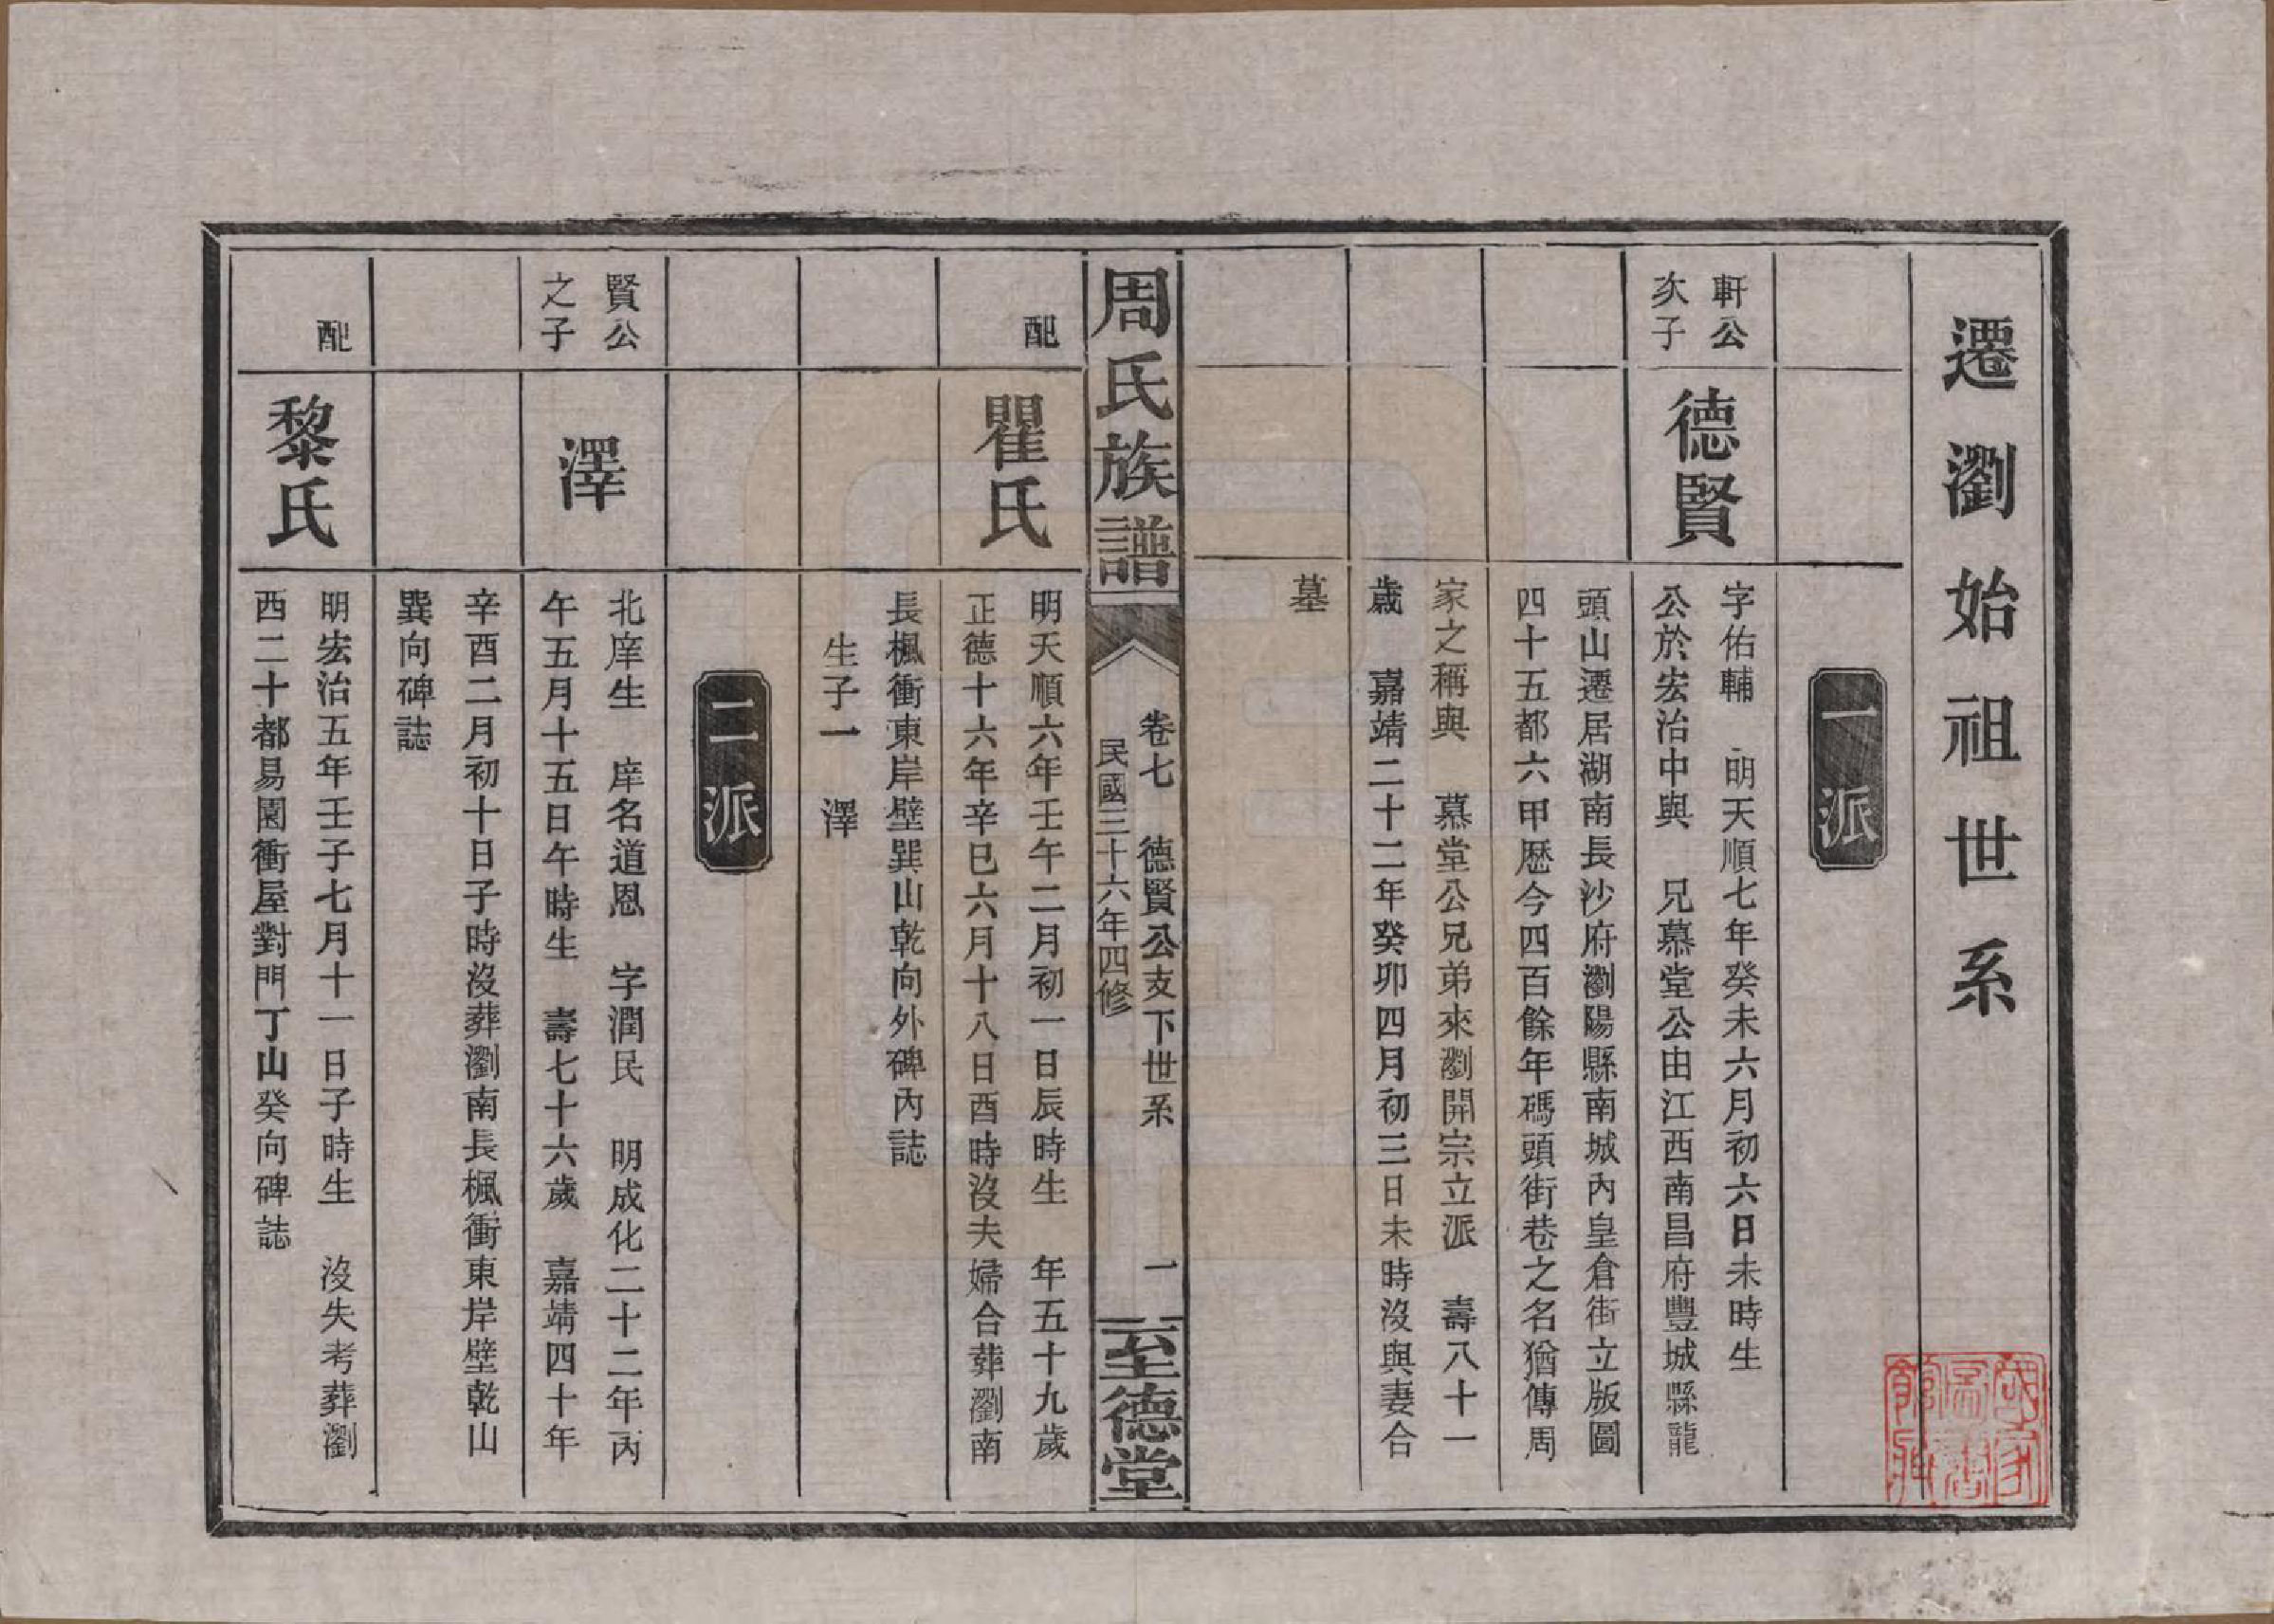 遷瀏始祖世系
一派
軒公
次子
德賢
字佑輔　明天順七年癸未六月初六日未時生
公於宏治中與　兄慕堂公由江西南昌府豐城縣龍
頭山遷居湖南長沙府瀏陽縣南城內皇倉街立版圖
四十五都六甲歷今四百餘年碼頭街巷之名猶傳周
家之稱與　慕堂公兄弟來瀏開宗立派　壽八十一
歲　嘉靖二十二年癸卯四月初三日未時沒與妻合
墓
周氏族譜
卷七　德賢公支下世系　一
民國三十六年四修
至德堂
配
瞿氏
明天順六年壬午二月初一日辰時生　年五十九歲
正德十六年辛巳六月十八日酉時沒夫婦合葬瀏南
長楓衝東岸壁巽山乾向外碑內誌
生子一　澤
二派
賢公
之子
澤
北庠生　庠名道恩　字潤民　明成化二十二年丙
午五月十五日午時生　壽七十六歲　嘉靖四十年
辛酉二月初十日子時沒葬瀏南長楓衝東岸壁乾山
巽向碑誌
配
黎氏
明宏治五年壬子七月十一日子時生　沒失考葬瀏
西二十都易園衝屋對門丁山癸向碑誌